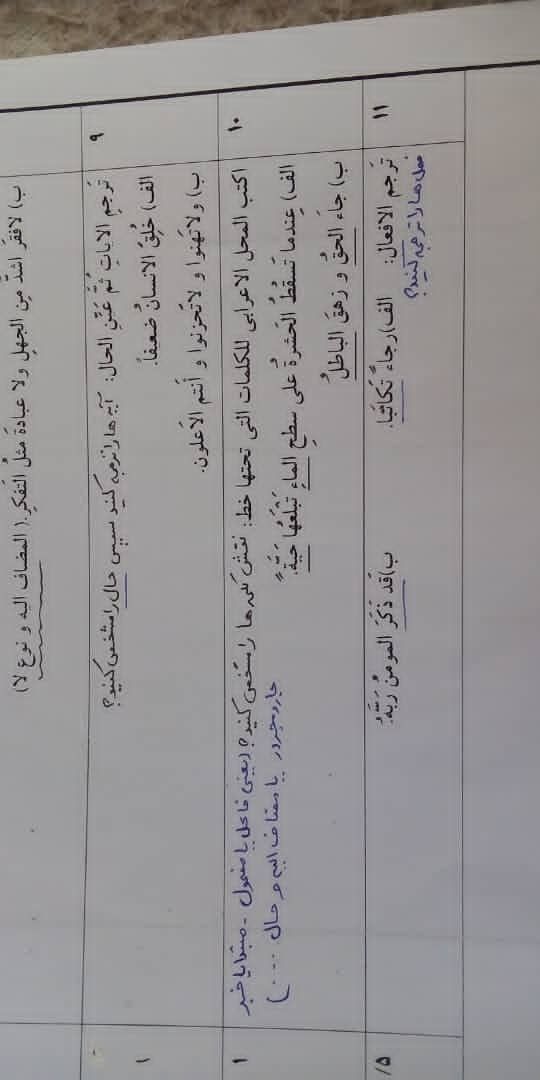 ب) لافقرَ اشدَّ مِن الجهلِ ولا عبادةَ مثلُ التفکرِ. ( المضاف الیه و نوع لا)
۹
ترجمِ الایاتِ ثُمَّ عَیّنِ الحال: آیه ها را ترجمه کنید سپس حال را مشخص کنید؟
الف) خُلِقَ الانسانُ ضَعیفاً.
ب) ولا تَهِنوا و لاتَحزنوا و اَنتم الاَعلون.
۱
۱۰
اکتب المحل الاعرابی للکلمات التی تحتها خط: نقش کلمه ها را مشخص کنید؟ (یعنی فاعل یا مفعول - مبتدا یا خبر
جارو مجرور یا مضاف الیه و حال ....)
الف) عِندما تَسقُطُ الحَشرةُ علی سطحِ الماءِ تَبلَعُها حَیّةٌ.
ب) جاءَ الحقُ و زهقَ الباطلُ
۱
۱۱
تَرجم الافعال: الف) رجاءً تَکاتَبا. ب) قَد ذَکَرَ المومنُ رَبَّهُ.
فعل ها را ترجمه کنید؟
/۵